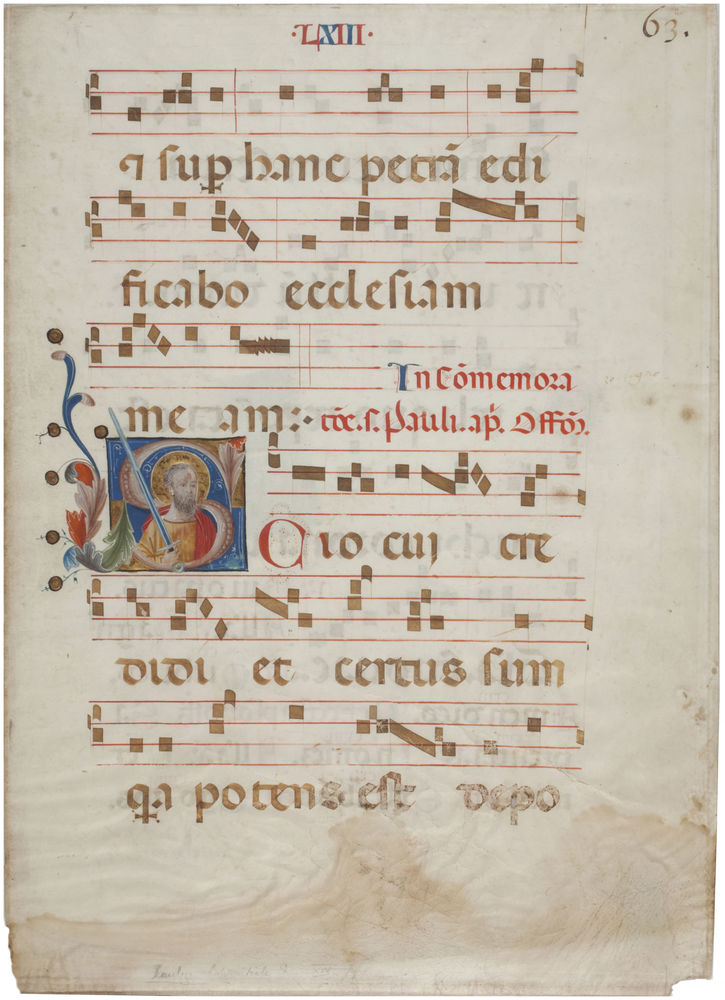 ·LXIII· 63.
⁊ sup hanc petrā edi
ficabo ecclesiam
In Cōmemora
me am: tōe. s. Pauli. ap̄. Offōr.
S Cio cui cre
didi et certus sum
q̇a potens est depo